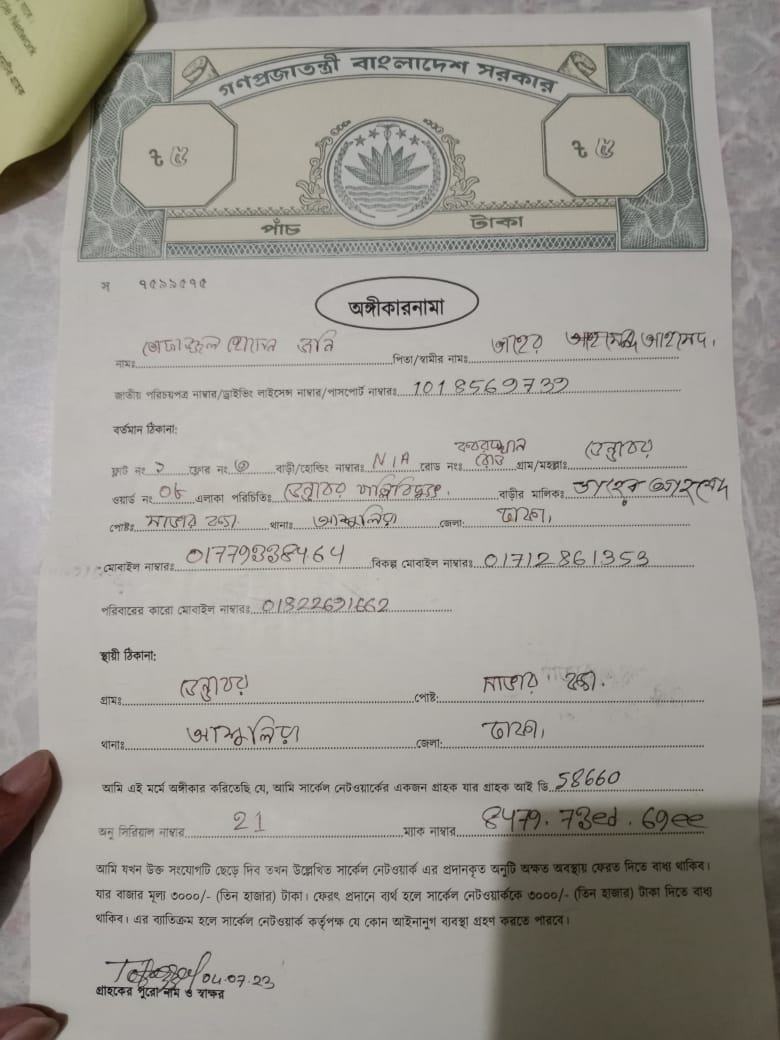 গণপ্রজাতন্ত্রী বাংলাদেশ সরকার
৳ ৫
৳ ৫
পাঁচ টাকা
স ৭৫৯৯৫৭৫
অঙ্গীকারনামা
নামঃ পিতা/স্বামীর নামঃ
জাতীয় পরিচয়পত্র নাম্বার/ড্রাইভিং লাইসেন্স নাম্বার/পাসপোর্ট নাম্বারঃ 1018569739
বর্তমান ঠিকানা:
ফ্লাট নং ২ ফ্লোর নং ৩ বাড়ী/হোল্ডিং নাম্বারঃ N/A রোড নংঃ কবরস্থান রোড গ্রাম/মহল্লাঃ
ওয়ার্ড নং 06 এলাকা পরিচিতিঃ পল্লিবিদ্যুৎ, বাড়ীর মালিকঃ
পোষ্টঃ থানাঃ আশুলিয়া জেলা: ঢাকা,
মোবাইল নাম্বারঃ 01779338464 বিকল্প মোবাইল নাম্বারঃ 01712861353
পরিবারের কারো মোবাইল নাম্বারঃ 01822691662
স্থায়ী ঠিকানা:
গ্রামঃ পোষ্ট:
থানাঃ আশুলিয়া জেলা: ঢাকা,
আমি এই মর্মে অঙ্গীকার করিতেছি যে, আমি সার্কেল নেটওয়ার্কের একজন গ্রাহক যার গ্রাহক আই ডি 58660
অনু সিরিয়াল নাম্বার 21 ম্যাক নাম্বার 8479.73ed.69ee
আমি যখন উক্ত সংযোগটি ছেড়ে দিব তখন উল্লেখিত সার্কেল নেটওয়ার্ক এর প্রদানকৃত অনুটি অক্ষত অবস্থায় ফেরত দিতে বাধ্য থাকিব।
যার বাজার মূল্য ৩০০০/- (তিন হাজার) টাকা। ফেরৎ প্রদানে ব্যর্থ হলে সার্কেল নেটওয়ার্ককে ৩০০০/- (তিন হাজার) টাকা দিতে বাধ্য
থাকিব। এর ব্যতিক্রম হলে সার্কেল নেটওয়ার্ক কর্তৃপক্ষ যে কোন আইনানুগ ব্যবস্থা গ্রহণ করতে পারবে।
04.07.23
গ্রাহকের পুরো নাম ও স্বাক্ষর